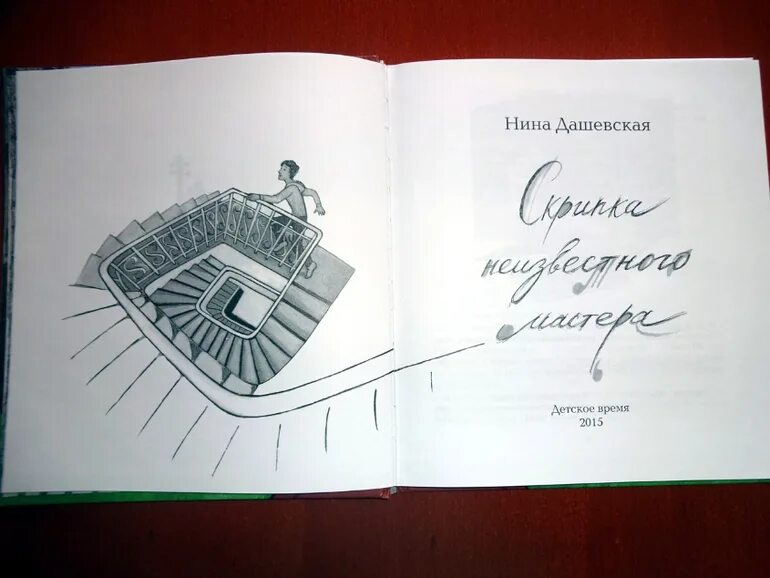 Нина Дашевская
Скрипка
неизвестного
мастера
Детское время
2015